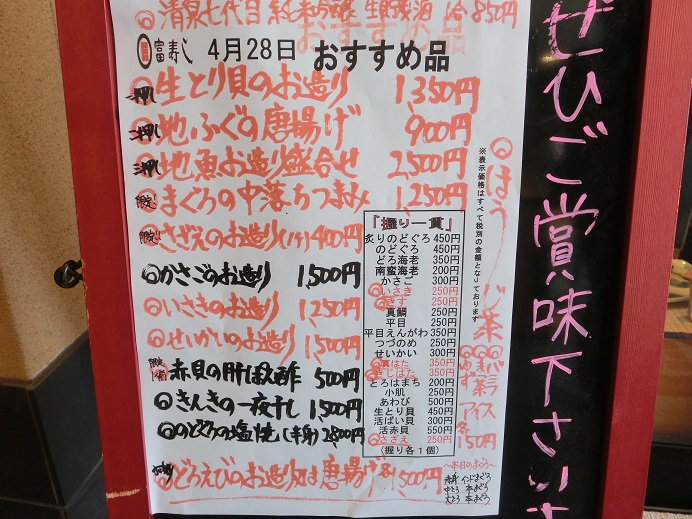 清泉七代目 純米吟醸 生貯蔵酒 1合 850円
富寿し 4月28日 おすすめ品
一押し 生とり貝のお造り 1,350円
二押し 地ふぐの唐揚げ 900円
三押し 地魚お造り盛合せ 2,500円
限定! まぐろの中落ちつまみ 1,250円
限定! さざえのお造り(1ケ) 400円
かさごのお造り 1,500円
いさきのお造り 1,250円
せいかいのお造り 1,500円
赤貝の肝ぽん酢 500円
きんきの一夜干し 1,500円
のどぐろの塩焼(半身) 2800円
どろえびのお造り又は唐揚げ 各1,500円
「握り一貫」
炙りのどぐろ 450円
のどぐろ 450円
どろ海老 350円
南蛮海老 200円
かさご 300円
いさき 250円
きす 250円
真鯛 250円
平目 250円
平目えんがわ 350円
つづのめ 250円
せいかい 300円
真はた 350円
きじはた 350円
とろはまち 200円
小肌 250円
あわび 500円
生とり貝 450円
活ばい貝 300円
活赤貝 550円
さざえ 250円
(握り各1個)
※表示価格はすべて税別の金額となっております
ほうじ茶
アイス
各150円
〜本日のまぐろ〜
赤身 インドまぐろ
中とろ 本まぐろ
大とろ 本まぐろ
ぜひご賞味下さいませ